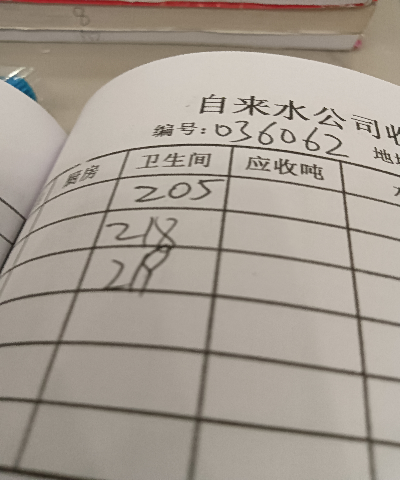 自来水公司收
编号:036062 地
厨房 卫生间 应收吨
205
218